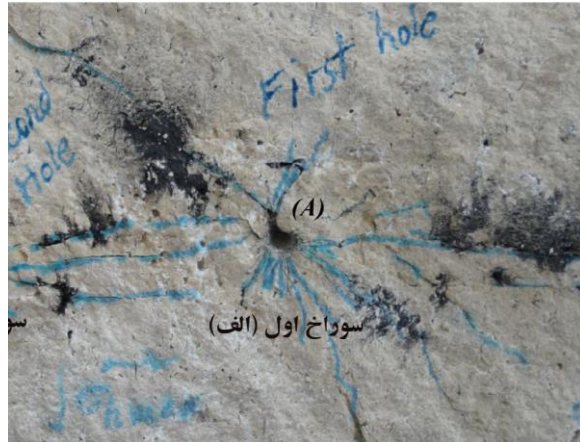 First hole
cond
Hole
(A)
سوراخ اول (الف)
سو
σhmax